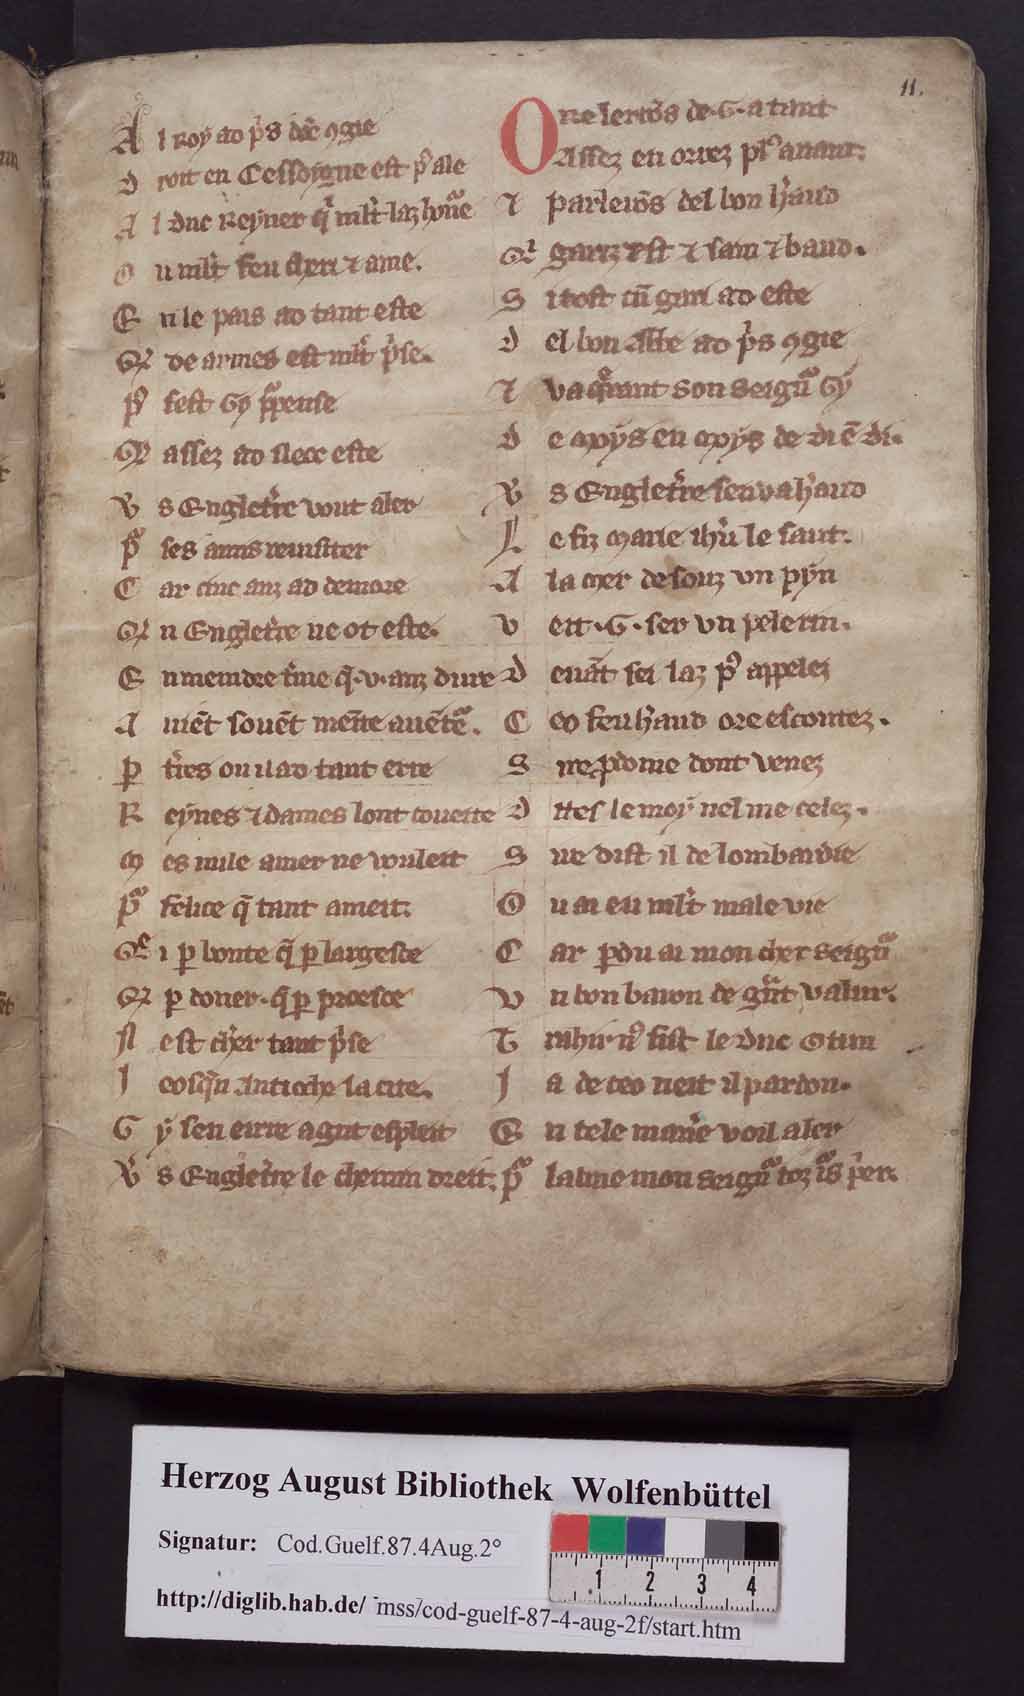 11.
A l Roy ad p's dūc ꝯgie
D roit en Cessoygne est p' ale
A l duc Reyner q' mlt laz hon͛e
O u mlt feu cheri ⁊ ame.
E n le pais ad tant este
Q' de armes est mlt p'se.
P' sest Gy p͛pense
Q' assez ad ilecc este
V's Engletere vout aler
P͛ ses amis reuisiter
C ar cinc anz ad demore
Q' n Engletere ne ot este.
E n meindre t'me q̄ .v. anz dure
A uiēt souēt meīte auēt͛e.
P t'res ou il ad tant erre
R eynes ⁊ dames lont coueite
M es nule amer ne vouleit
P͛ felice q̄ tant ameit.
Q' i p bonte q̄ p largesce
Q' p doner. q̄ p proesce
Il est ch'er tant p'se
I eosq̄n Antioche la cite.
G y sen eirre a gnt espleit
V's Engletere le chemin dreit.
O Re lerrōs de .G. a tant
Assez en orrez pl' auant.
⁊ parlerōs del bon h'aud
Q' gariz est ⁊ sain ⁊ baud.
S i tost cū gari ad este
D el bon Abbe ad p's ꝯgie
⁊ va q'rant son seign͛ Gy
D e pays en pays de di ē di.
V's Engletere sen va h'aud
L e fiz Marie ih'u le saut.
A la mer desouz vn pyn
V eit .G. ser vn pelerin.
D euāt sei laz p' appelez
C eo feu h'aud ore escoutez.
S ire p'dome dont venez
D ites le moy nel me celez.
S ire dist il de lombardie
O u ai eu mlt male vie
C ar p'du ai mon cher seign͛
V n bon baron de g'nt valur.
T rahir n' fist le duc Otun
I a de ceo neit il pardon.
E n tele man'e voil aler
P͛ lalme mon seign͛ toz i͛s p'er.
Herzog August Bibliothek Wolfenbüttel
Signatur: Cod.Guelf.87.4Aug.2°
1 2 3 4
http://diglib.hab.de/ mss/cod-guelf-87-4-aug-2f/start.htm